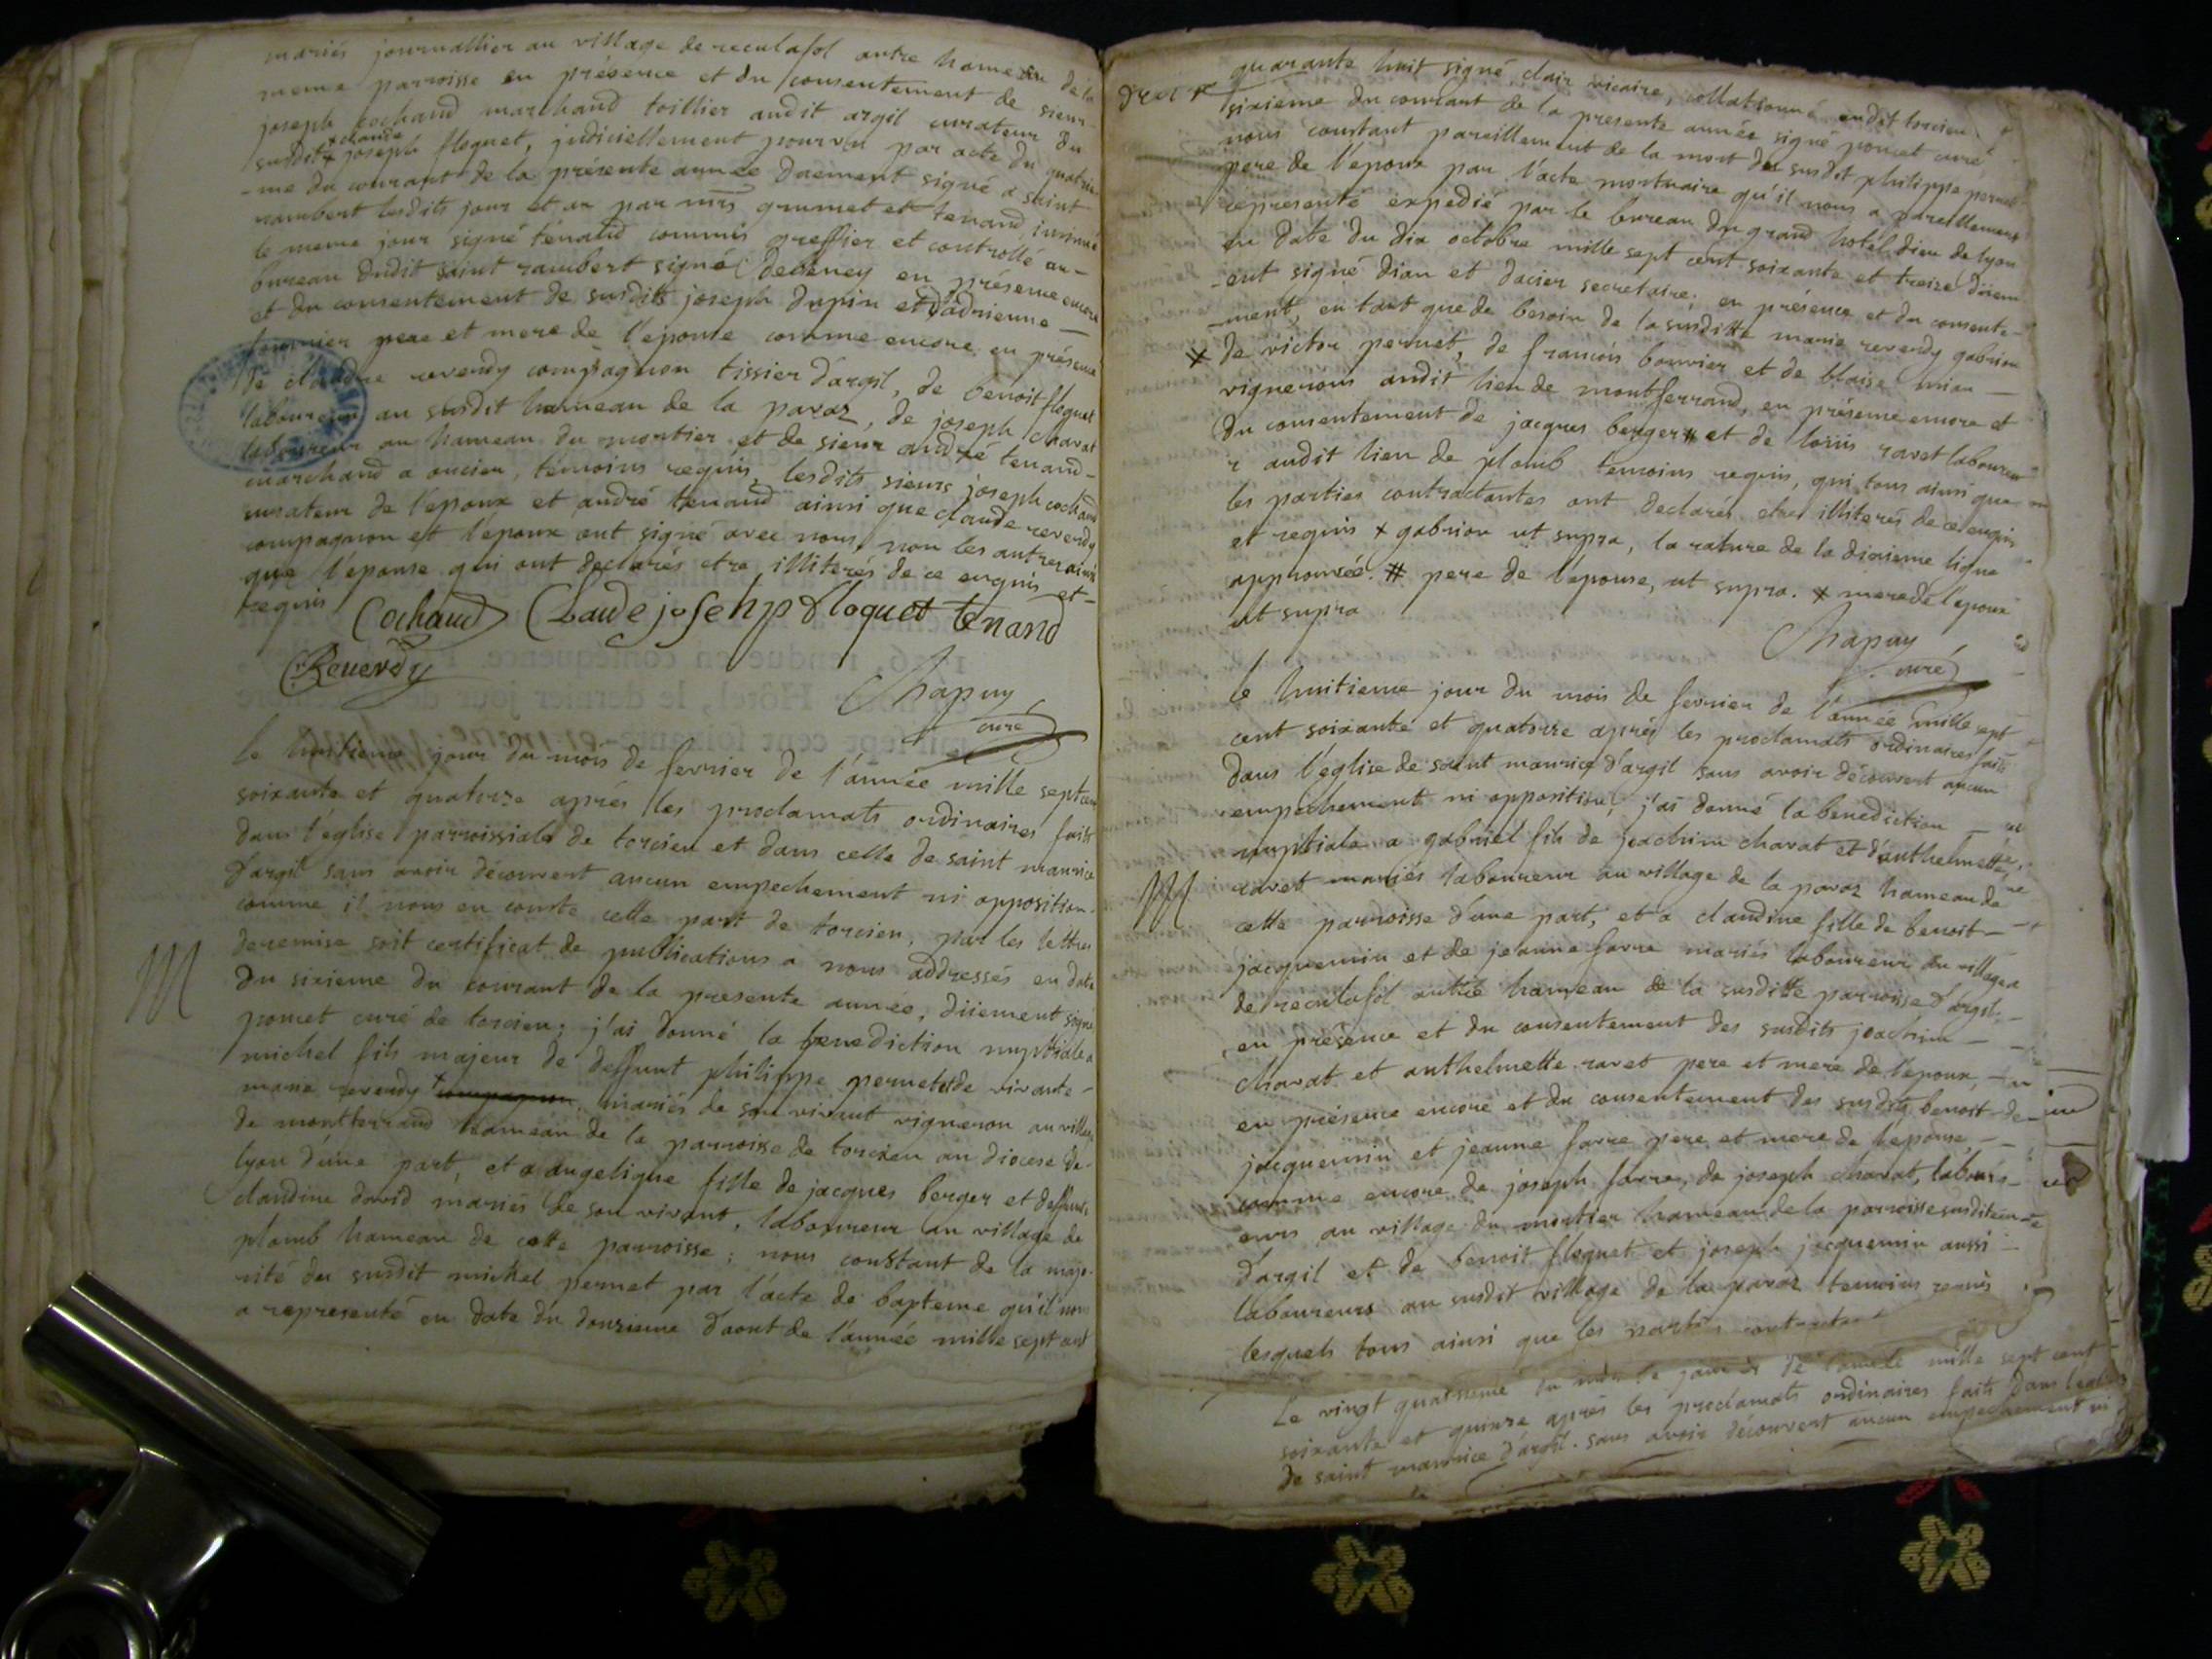 mariés journallier au village de reculafol autre hameau de la
meme parroisse en présence et du consentement de sieur
joseph cochand marchand toillier audit argil curateur du
susdit x claude joseph floquet, judiciellement pourvu par acte du quatrie
-me du courant de la présente année duement signé a saint
rambert lesdits jour et an par mrs grumet et tenand, insinué
le meme jour signé tenand commis greffier et controllé au-
bureau dudit saint rambert signé debeney en présence encore
et du consentement de susdits joseph dupin et d'adrienne
fournier pere et mere de l'epouse comme encore en présence
de claudre reverdy compagnon tissier d'argil, de benoit floquet
laboureur au susdit hameau de la pavaz, de joseph charat
laboureur au hameau du montier et de sieur andré tenand-
marchand a oncieu, témoins requis, lesdits sieurs joseph cochand
curateur de l'epoux et andré tenand ainsi que claude reverdy
compagnon et l'epoux ont signé avec nous, non les autres ainsi
que l'épouse qui ont declarés etre illiterés de ce enquis et-
requis
Cochand Claude joseph floquet tenand
C. Reverdy
Chapuy
curé
le huitieme jour du mois de fevrier de l'année mille sept cent
soixante et quatorze aprés les proclamats ordinaires faits
dans l'eglise parroissiale de torcieu et dans celle de saint maurice
d'argil sans avoir découvert aucun empechement ni opposition
comme il nous en conste cette part de torcieu, par les lettres
de remise soit certificat de publications a nous addressés en date
du sixieme du courant de la presente année, düement signé
poncet curé de torcieu; j'ai donné la benediction nuptiale a
M
michel fils majeur de deffunt philippe pernet et de vivante-
marie reverdy x compagnon, mariés de son vivant vigneron au village
de montferrand hameau de la parroisse de torcieu au diocese de-
lyon d'une part, et a angelique fille de jacques berger et deffunte
claudine david mariés de son vivant, laboureur au village de
plomb hameau de cette parroisse; nous constant de la majo-
rité du susdit michel pernet par l'acte de bapteme qu'il nous
a representé en date du douzieme d'aout de l'année mille sept cent
quarante huit signé clair vicaire, collationné audit torcieu
sixieme du courant de la presente année signé poncet curé
nous constant pareillement de la mort du susdit philippe pernet
pere de l'epoux par l'acte mortuaire qu'il nous a pareillement
représenté expedié par le bureau du grand hotel dieu de lyon
en date du dix octobre mille sept cent soixante et treize düem
-ent signé dian et dacier secretaire; en présence et du consente-
-ment, en tant que de besoin de la susditte marie reverdy gabrion
x de victor pernet, de francois bouvier et de blaise
vignerons audit lieu de montferrand, en présence encore et
du consentement de jacques berger # et de louis ravet laboureur
audit lieu de plomb temoins requis, qui tous ainsi que
les parties contractantes ont declarés etre illiterés de ce enquis
et requis x gabrion ut supra, la rature de la dixieme ligne
approuvée. # pere de l'épouse, ut supra. x mere de l'epoux
ut supra
Chapuy
curé
le huitieme jour du mois de fevrier de l'année mille sept
cent soixante et quatorze aprés les proclamats ordinaires faits
dans l'église de saint maurice d'argil sans avoir découvert aucun
empechement ni opposition, j'ai donné la benediction
nuptiale a gabriel fils de joachim charat et d'anthelmette
M
ravet mariés laboureur au village de la pavaz hameau de
cette parroisse d'une part, et a claudine fille de benoit-
jacquemin et de jeanne favre mariés laboureur au village
de reculafol autre hameau de la susditte parroisse d'argil-
en présence et du consentement des susdits joachim -
charat et anthelmette ravet pere et mere de l'epoux,
en présence encore et du consentement des susdits benoit-
jacquemin et jeanne favre pere et mere de l'epouse, -
comme encore de joseph favre, de joseph charat, labour-
eurs au village du montier hameau de la parroisse susditte
d'argil et de benoit floquet et joseph jacquemin aussi -
laboureurs au susdit village de la pavaz temoins requis
lesquels tous ainsi que les parties contractantes
Le vingt quatrieme du mois de janvier de l'année mille sept cent
soixante et quinze aprés les proclamats ordinaires faits dans l'eglise
de saint maurice d'argil. sans avoir découvert aucun empechement ni